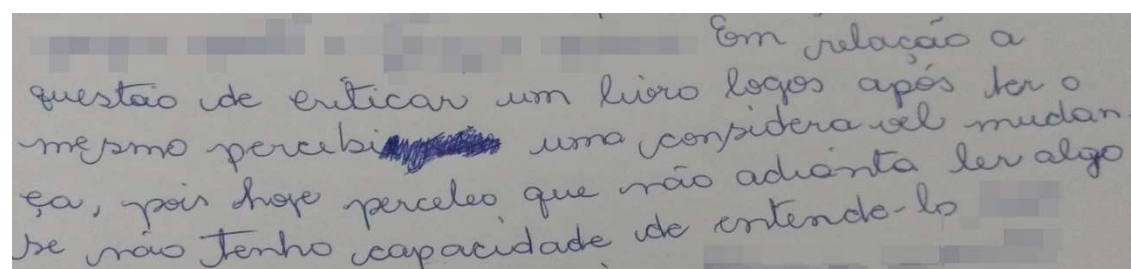 Em relação a
questão de criticar um livro logos após ler o
mesmo percebi uma considera vel mudan
ça, pois hoje percebo que não adianta ler algo
se não tenho capacidade de entende-lo